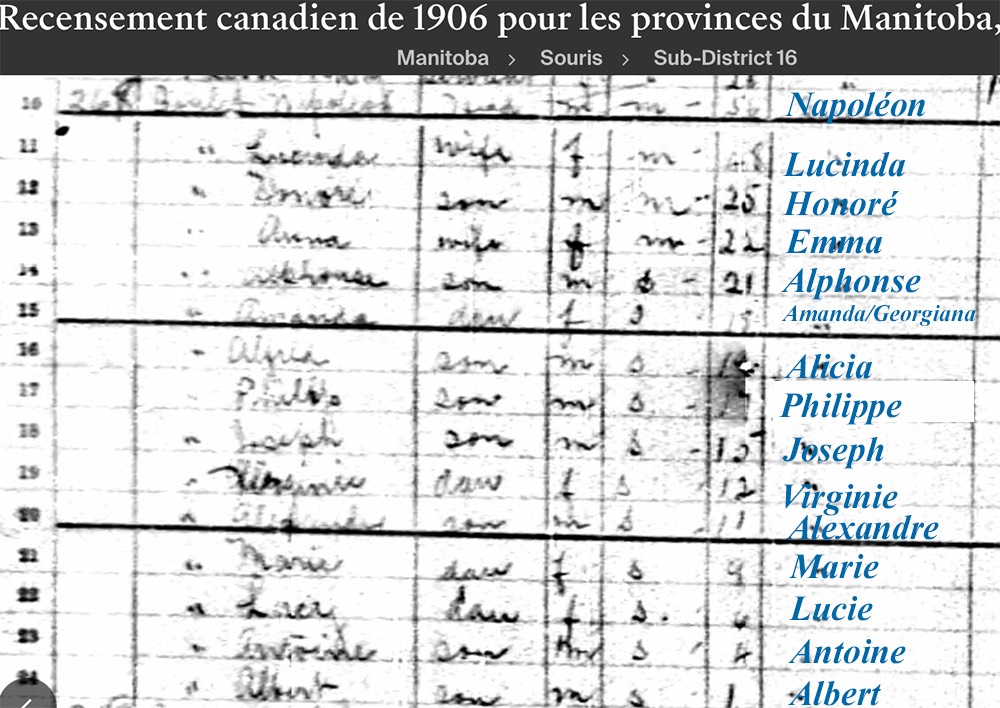 Recensement canadien de 1906 pour les provinces du Manitoba,
Manitoba > Souris > Sub-District 16
10 268 Napoleon m m Napoléon
11 " Lucinda wife f m - 48 Lucinda
12 " Honoré son m m - 25 Honoré
13 " Anna wife f m - 22 Emma
14 " Alphonse son m s - 21 Alphonse
15 " Amanda dau f s Amanda/Georgiana
16 " son m s Alicia
17 " Philip son m s - Philippe
18 " Joseph son m s - 15 Joseph
19 " Virginie dau f s 12 Virginie
20 " son m s 11 Alexandre
21 " Marie dau f s 9 Marie
22 " dau f s. Lucie
23 " Antoine son m s 4 Antoine
24 " Albert son m s 1 Albert